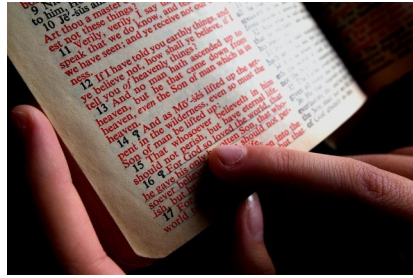 9 Ni
to him, H
10 Jē´-ṣŭs an
Art thou a master
est not these things
11 Verily, verily, I say
speak that we do know, and
we have seen; and ye receive not our
ness.
12 If I have told you earthly things, and
ye believe not, how shall ye believe, if I
tell you of heavenly things?
13 And no man hath ascended up to
heaven, but he that came down from
heaven, even the Son of man which is in
heaven.
14 ¶ And as Mō´-ṣĕs lifted up the ser-
pent in the wilderness, even so must the
Son of man be lifted up:
15 That whosoever believeth in him
should not perish, but have eternal life.
16 ¶ For God so loved the world, that
he gave his only
soever beli
ish, but
17 For
world